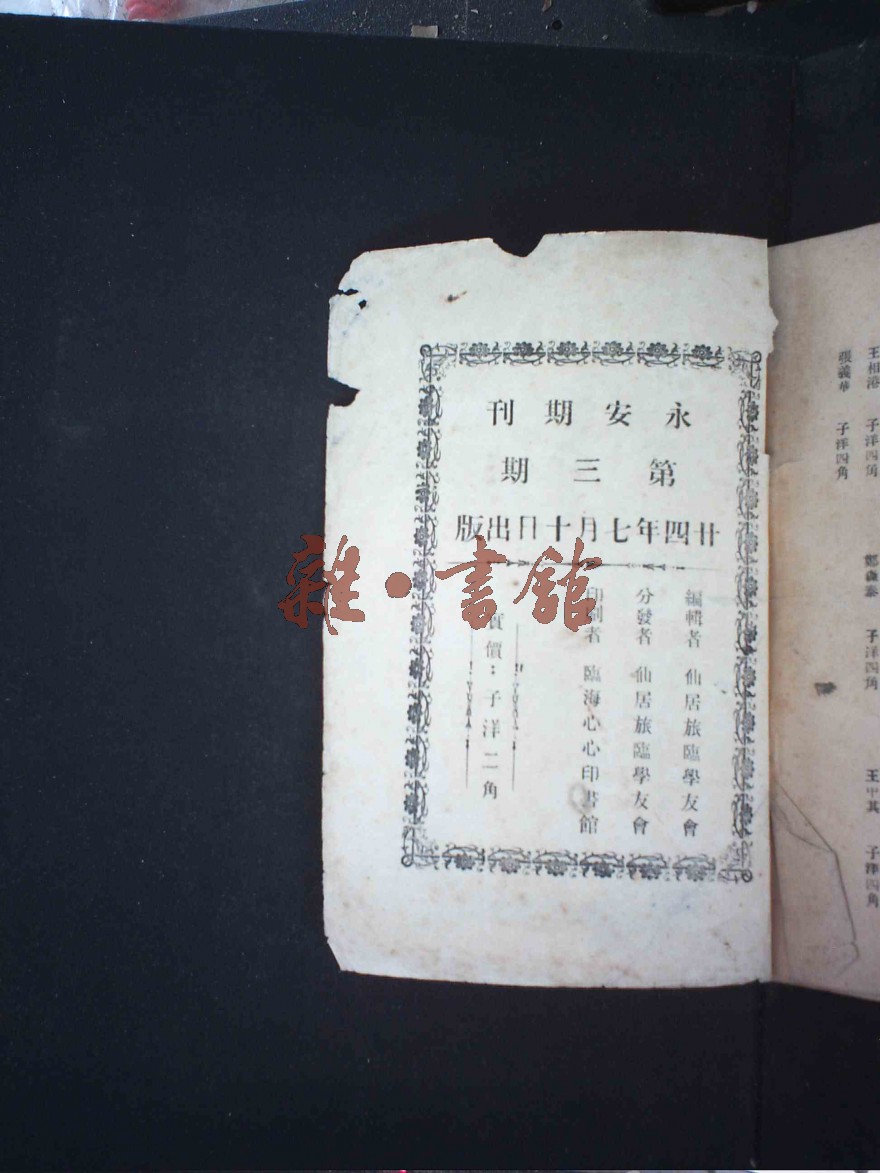 永安期刊
第三期
廿四年七月十日出版
編輯者 仙居旅臨學友會
分發者 仙居旅臨學友會
印刷者 臨海心心印書館
實價：子洋二角
雜·書館
王相港 子洋四角
張義華 子洋四角
鄭森泰 子洋四角
王甲其 子洋四角